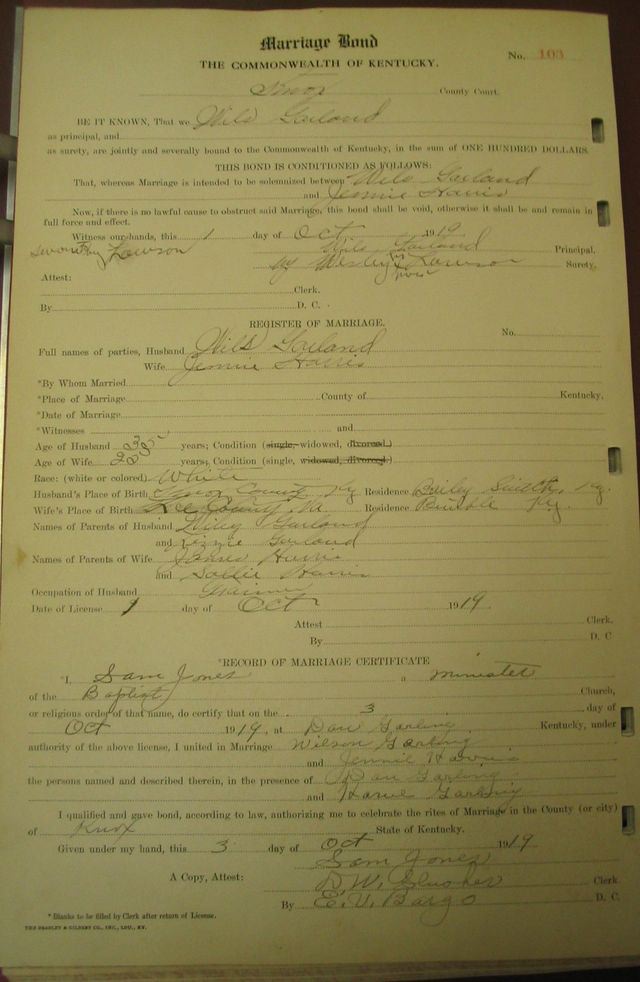 Marriage Bond
THE COMMONWEALTH OF KENTUCKY.
No. 103
Knox County Court.
BE IT KNOWN, That we Wils Garland
as principal, and
as surety, are jointly and severally bound to the Commonwealth of Kentucky, in the sum of ONE HUNDRED DOLLARS.
THIS BOND IS CONDITIONED AS FOLLOWS:
That, whereas Marriage is intended to be solemnized between Wils Garland
and Jennie Harris
Now, if there is no lawful cause to obstruct said Marriage, this bond shall be void, otherwise it shall be and remain in
full force and effect.
Witness our hands, this 1 day of Oct 1919
Lawson Wils Garland Principal.
Wesley Lawson Surety.
Attest:
Clerk.
By D. C.
REGISTER OF MARRIAGE.
No.
Full names of parties, Husband Wils Garland
Wife Jennie Harris
*By Whom Married
*Place of Marriage County of Kentucky.
*Date of Marriage
*Witnesses and
Age of Husband 35 years; Condition (single, widowed, divorced.)
Age of Wife 25 years; Condition (single, widowed, divorced.)
Race: (white or colored) White
Husband's Place of Birth Knox County Ky Residence Bailey Switch, Ky.
Wife's Place of Birth Lee County Residence Ky.
Names of Parents of Husband Garland
and Lizzie Garland
Names of Parents of Wife James Harris
and Sallie Harris
Occupation of Husband
Date of License 1 day of Oct 1919
Attest Clerk.
By D. C
*RECORD OF MARRIAGE CERTIFICATE
*I, Sam Jones a minister
of the Baptist Church,
or religious order of that name, do certify that on the 3 day of
Oct 1919, at Dan Garling Kentucky, under
authority of the above license, I united in Marriage Wilson Garling
and Jennie Harris
the persons named and described therein, in the presence of Dan Garling
and Garling
I qualified and gave bond, according to law, authorizing me to celebrate the rites of Marriage in the County (or city)
of Knox State of Kentucky.
Given under my hand, this 3 day of Oct 1919
Sam Jones
A Copy, Attest: D. W. Slusher Clerk
By E. V. Bargo D. C.
*Blanks to be filled by Clerk after return of License.
THE BRADLEY & GILBERT CO., INC., LOU., KY.